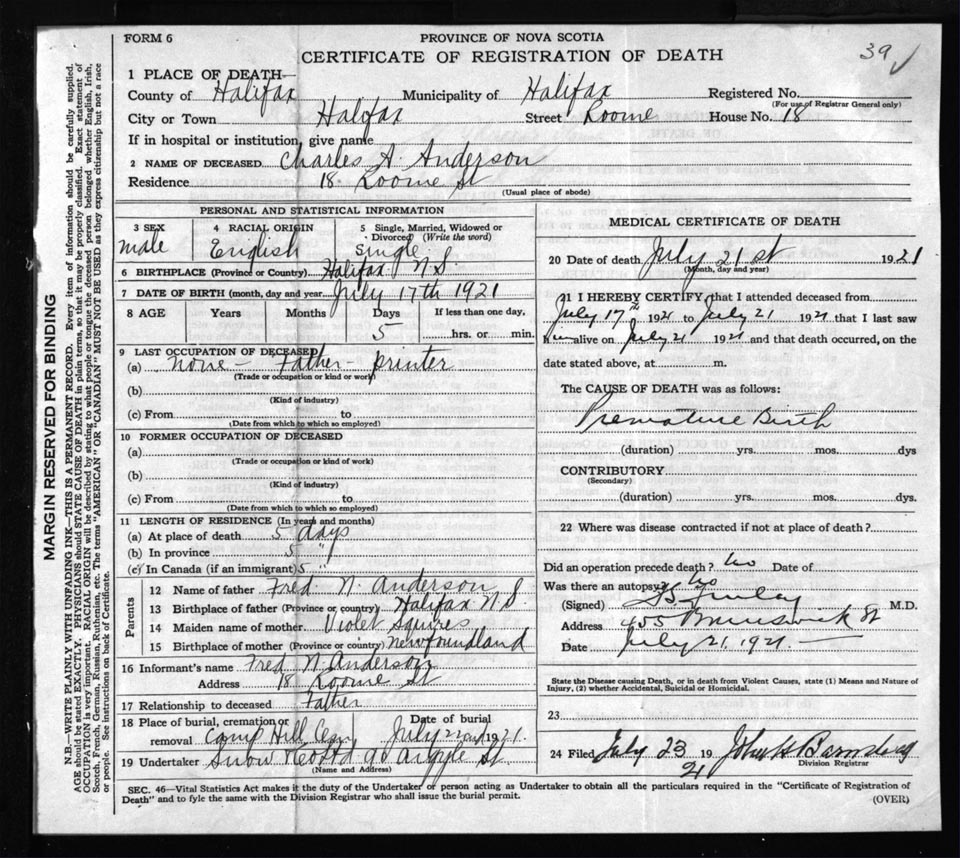 FORM 6
PROVINCE OF NOVA SCOTIA
CERTIFICATE OF REGISTRATION OF DEATH
39 ✓
1 PLACE OF DEATH—
County of Halifax Municipality of Halifax Registered No.
(For use of Registrar General only)
City or Town Halifax Street Roome House No. 18
If in hospital or institution, give name
2 NAME OF DECEASED Charles A. Anderson
Residence 18 Roome St
(Usual place of abode)
PERSONAL AND STATISTICAL INFORMATION
3 SEX male
4 RACIAL ORIGIN English
5 Single, Married, Widowed or Divorced (Write the word) Single
6 BIRTHPLACE (Province or Country) Halifax N.S.
7 DATE OF BIRTH (month, day and year July 17th 1921
8 AGE Years Months Days If less than one day,
5 hrs. or min.
9 LAST OCCUPATION OF DECEASED
(a) none - Father printer
(Trade or occupation or kind or work)
(b)
(Kind of industry)
(c) From to
(Date from which to which so employed)
10 FORMER OCCUPATION OF DECEASED
(a)
(Trade or occupation or kind of work)
(b)
(Kind of industry)
(c) From to
(Date from which to which so employed)
11 LENGTH OF RESIDENCE (In years and months)
(a) At place of death 5 days
(b) In province 5 "
(c) In Canada (if an immigrant) 5 "
Parents
12 Name of father Fred N. Anderson
13 Birthplace of father (Province or country) Halifax N.S.
14 Maiden name of mother Violet Squires
15 Birthplace of mother (Province or country) Newfoundland
16 Informant's name Fred N. Anderson
Address 18 Roome St
17 Relationship to deceased Father
18 Place of burial, cremation or removal Camp Hill Cem Date of burial July 22nd 1921.
19 Undertaker Snow & Co Ltd 90 Argyle St
(Name and Address)
MEDICAL CERTIFICATE OF DEATH
20 Date of death July 21st 1921
(Month, day and year)
21 I HEREBY CERTIFY that I attended deceased from
July 17th 1921 to July 21 1921 that I last saw
him alive on July 21 1921 and that death occurred, on the
date stated above, at m.
The CAUSE OF DEATH was as follows:
Premature Birth
(duration) yrs. mos. dys
CONTRIBUTORY
(Secondary)
(duration) yrs. mos. dys.
22 Where was disease contracted if not at place of death?
Did an operation precede death? no Date of
Was there an autopsy? no
(Signed) Finlay M.D.
Address 455 Brunswick St
Date July 21, 1921
State the Disease causing Death, or in death from Violent Causes, state (1) Means and Nature of
Injury, (2) whether Accidental, Suicidal or Homicidal.
23
24 Filed July 23 1921 John H
Division Registrar
SEC. 46—Vital Statistics Act makes it the duty of the Undertaker or person acting as Undertaker to obtain all the particulars required in the "Certificate of Registration of
Death" and to fyle the same with the Division Registrar who shall issue the burial permit.
(OVER)
MARGIN RESERVED FOR BINDING
N.B.—WRITE PLAINLY WITH UNFADING INK—THIS IS A PERMANENT RECORD. Every item of information should be carefully supplied.
AGE should be stated EXACTLY. PHYSICIANS should STATE CAUSE OF DEATH in plain terms, so that it may be properly classified. Exact statement of
OCCUPATION is very important. RACIAL ORIGIN will be described by stating to what people or tongue the deceased person belonged whether English, Irish,
Scotch, French, German, Russian, Ruthenian, etc. The terms "AMERICAN" OR "CANADIAN" MUST NOT BE USED as they express citizenship but not a race
or people. See instructions on back of Certificate.